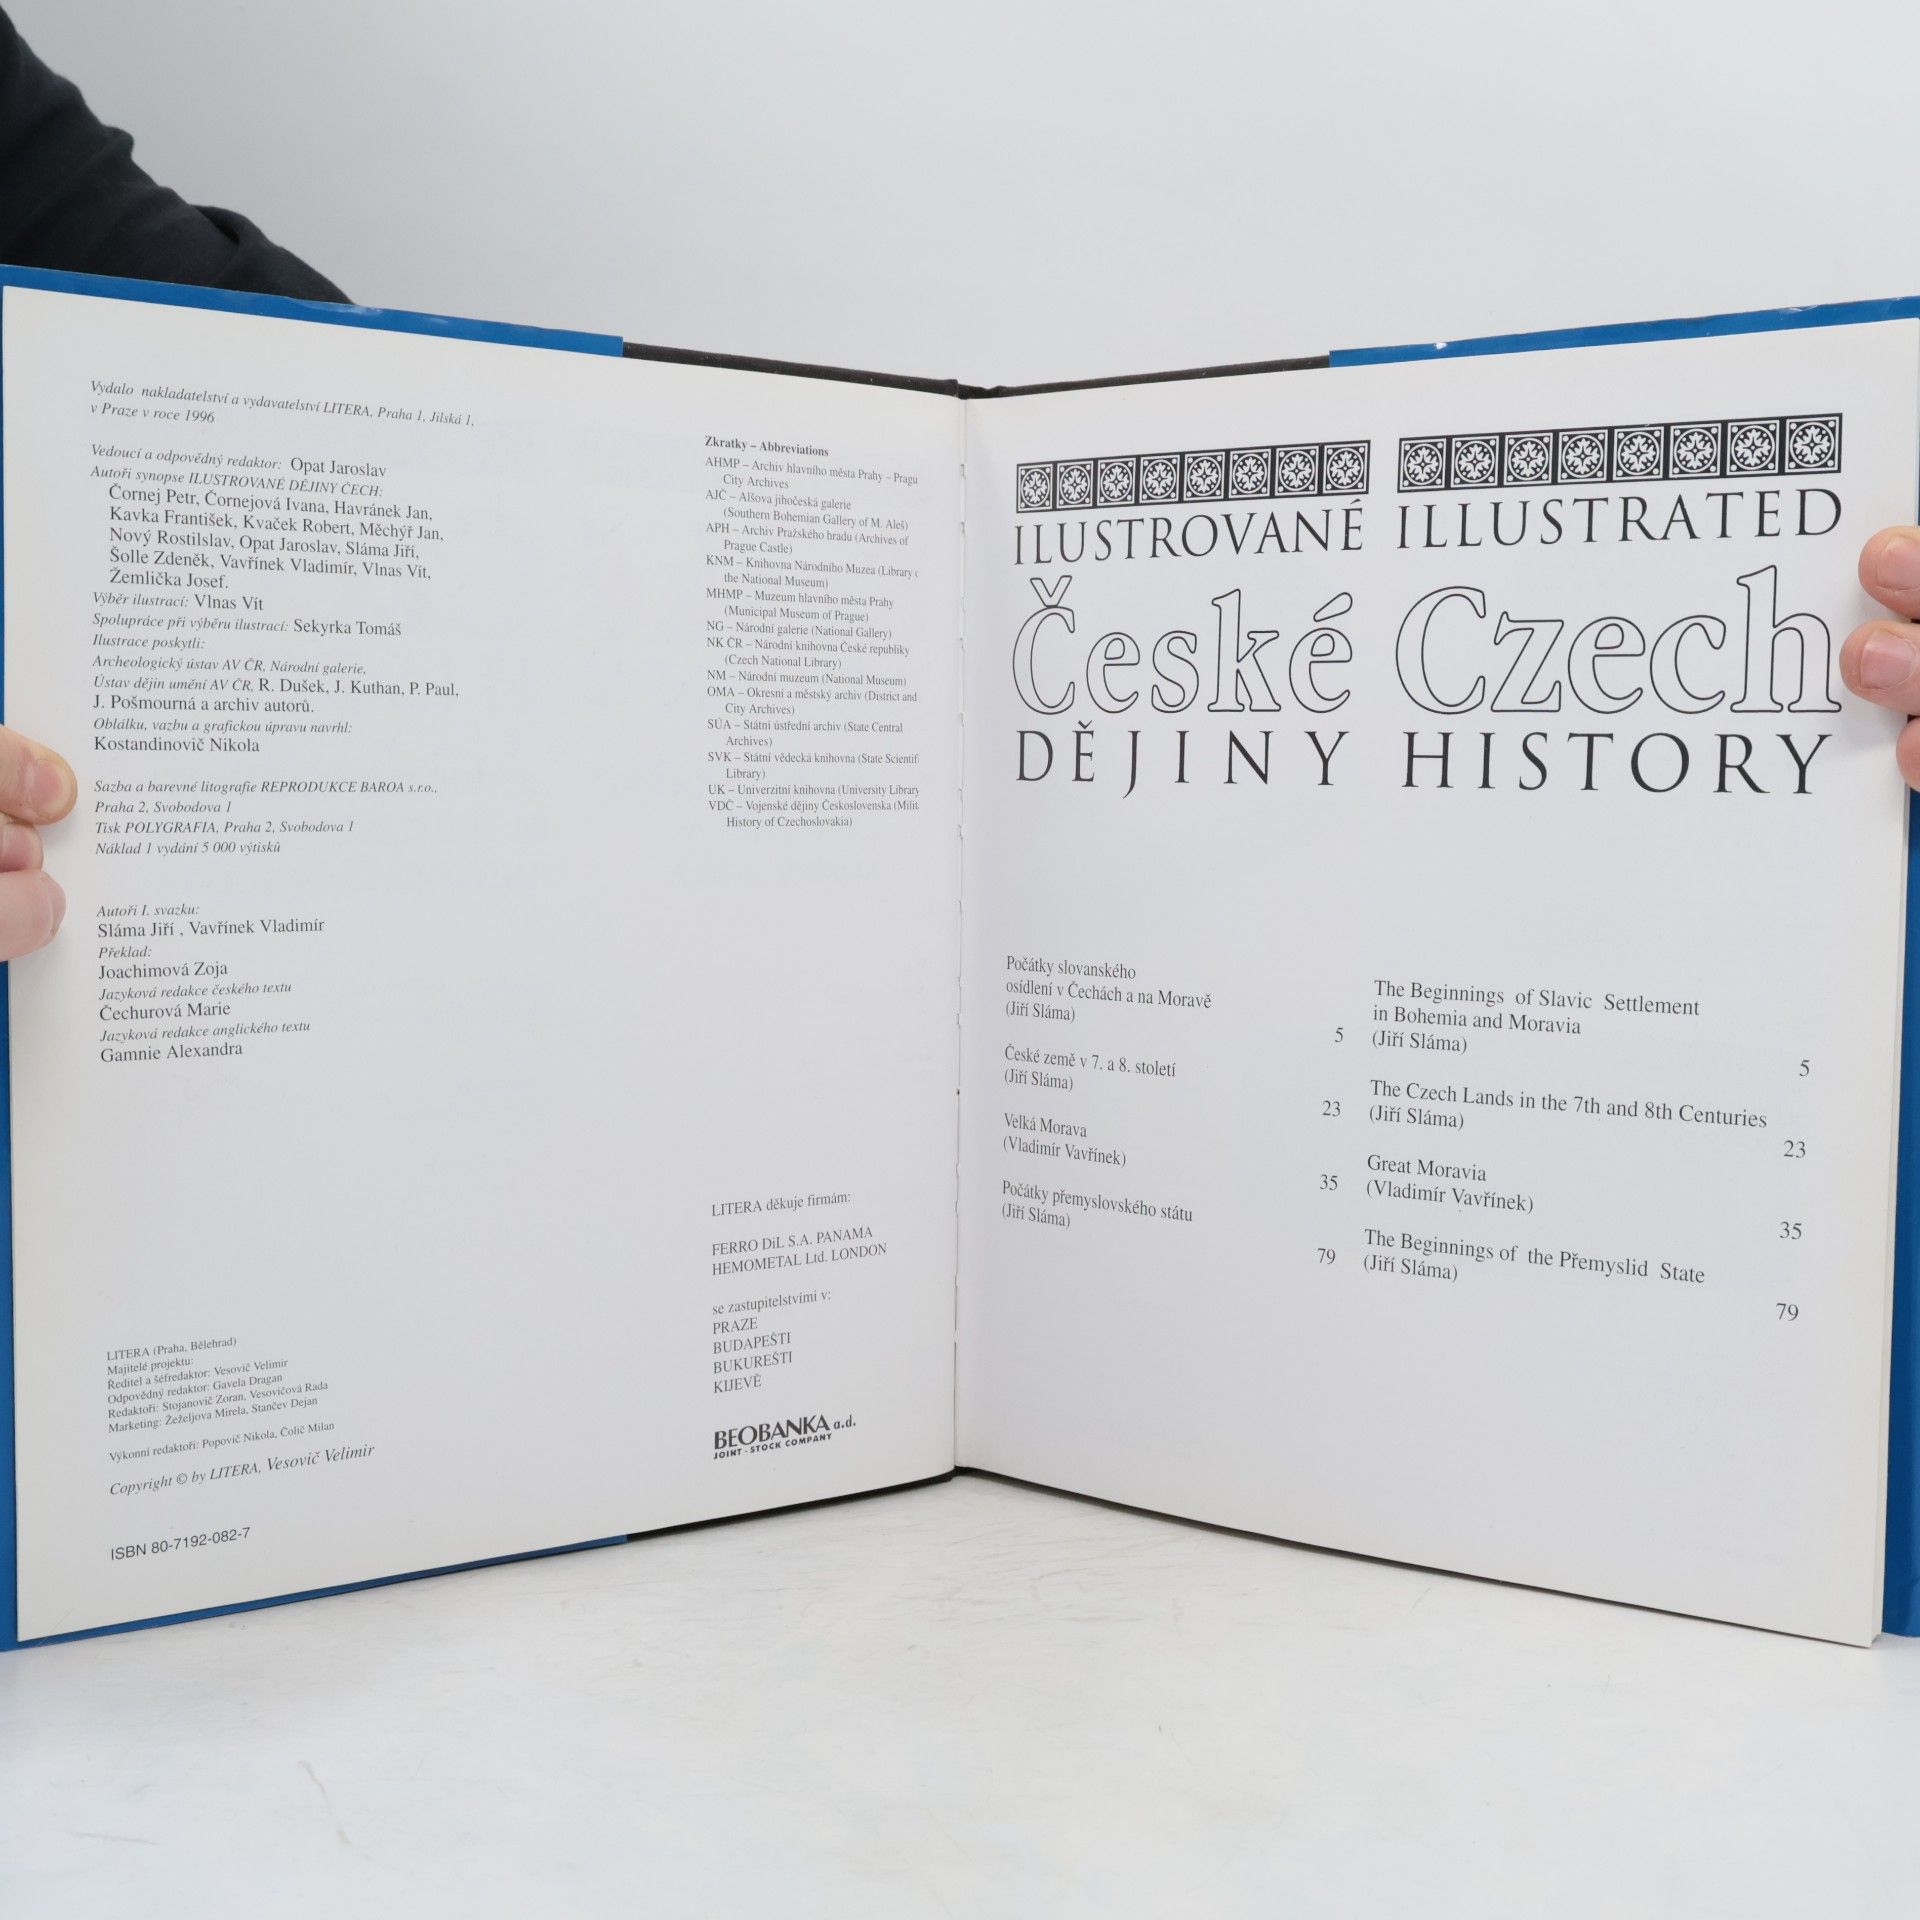 Vydalo nakladatelství a vydavatelství LITERA, Praha 1, Jilská 1,
v Praze v roce 1996
Vedoucí a odpovědný redaktor: Opat Jaroslav
Autoři synopse ILUSTROVANÉ DĚJINY ČECH:
Čornej Petr, Čornejová Ivana, Havránek Jan,
Kavka František, Kvaček Robert, Měchýř Jan,
Nový Rostilslav, Opat Jaroslav, Sláma Jiří,
Šolle Zdeněk, Vavřínek Vladimír, Vlnas Vít,
Žemlička Josef.
Výběr ilustrací: Vlnas Vít
Spolupráce při výběru ilustrací: Sekyrka Tomáš
Ilustrace poskytli:
Archeologický ústav AV ČR, Národní galerie,
Ústav dějin umění AV ČR, R. Dušek, J. Kuthan, P. Paul,
J. Pošmourná a archiv autorů.
Obálku, vazbu a grafickou úpravu navrhl:
Kostandinovič Nikola
Sazba a barevné litografie REPRODUKCE BAROA s.r.o.,
Praha 2, Svobodova 1
Tisk POLYGRAFIA, Praha 2, Svobodova 1
Náklad 1 vydání 5 000 výtisků
Autoři I. svazku:
Sláma Jiří , Vavřínek Vladimír
Překlad:
Joachimová Zoja
Jazyková redakce českého textu
Čechurová Marie
Jazyková redakce anglického textu
Gamnie Alexandra
LITERA (Praha, Bělehrad)
Majitelé projektu:
Ředitel a šéfredaktor: Vesovič Velimir
Odpovědný redaktor: Gavela Dragan
Redaktoři: Stojanovič Zoran, Vesovičová Rada
Marketing: Žeželjova Mirela, Stančev Dejan
Výkonní redaktoři: Popovič Nikola, Čolič Milan
Copyright © by LITERA, Vesovič Velimir
ISBN 80-7192-082-7
Zkratky – Abbreviations
AHMP – Archiv hlavního města Prahy – Pragu
City Archives
AJČ – Alšova jihočeská galerie
(Southern Bohemian Gallery of M. Aleš)
APH – Archiv Pražského hradu (Archives of
Prague Castle)
KNM – Knihovna Národního Muzea (Library
the National Museum)
MHMP – Muzeum hlavního města Prahy
(Municipal Museum of Prague)
NG – Národní galerie (National Gallery)
NK ČR – Národní knihovna České republiky
(Czech National Library)
NM – Národní muzeum (National Museum)
OMA – Okresní a městský archiv (District and
City Archives)
SÚA – Státní ústřední archiv (State Central
Archives)
SVK – Státní vědecká knihovna (State Scientif
Library)
UK – Univerzitní knihovna (University Library
VDČ – Vojenské dějiny Československa (Milit
History of Czechoslovakia)
LITERA děkuje firmám:
FERRO DiL S.A. PANAMA
HEMOMETAL Ltd. LONDON
se zastupitelstvími v:
PRAZE
BUDAPEŠTI
BUKUREŠTI
KIJEVĚ
BEOBANKA a.d.
JOINT - STOCK COMPANY
ILUSTROVANÉ
České
DĚJINY
ILLUSTRATED
Czech
HISTORY
Počátky slovanského
osídlení v Čechách a na Moravě
(Jiří Sláma)
5
České země v 7. a 8. století
(Jiří Sláma)
23
Velká Morava
(Vladimír Vavřínek)
35
Počátky přemyslovského státu
(Jiří Sláma)
79
The Beginnings of Slavic Settlement
in Bohemia and Moravia
(Jiří Sláma)
5
The Czech Lands in the 7th and 8th Centuries
(Jiří Sláma)
23
Great Moravia
(Vladimír Vavřínek)
35
The Beginnings of the Přemyslid State
(Jiří Sláma)
79